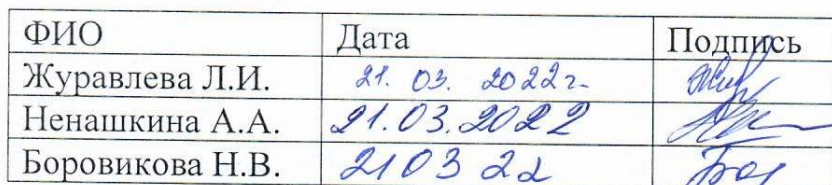 ФИО Дата Подпись
Журавлева Л.И. 21. 03. 2022г.
Ненашкина А.А. 21.03.2022
Боровикова Н.В. 21 03 22